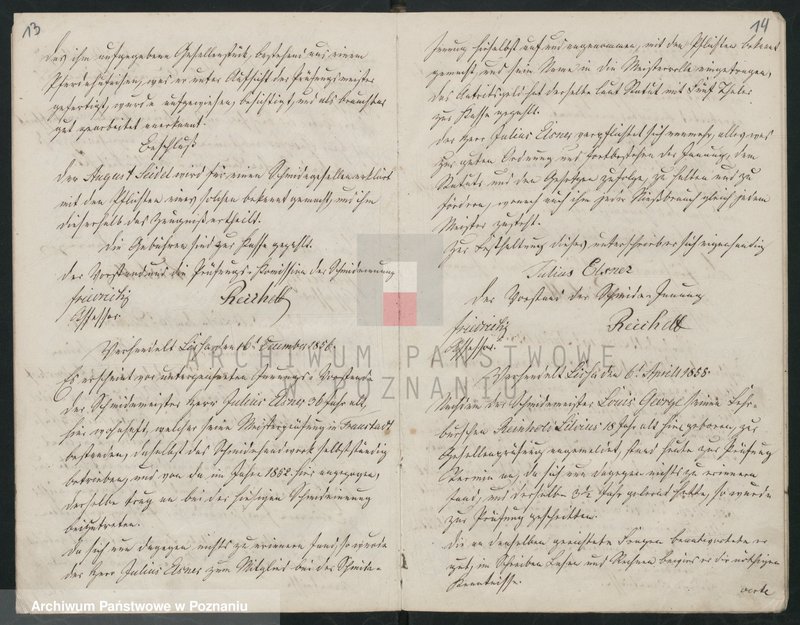 13
das ihm aufgegebene Gesellenstück, bestehend aus einem
Pferdehufeisen, was er unter Aufsicht der Prüfungsmeister
gefertigt, wurde aufgewiesen, besichtigt, und als brauchbar
gut gearbeitet anerkannt.
Beschluß
Der August Seidel wird für einen Schmiedegesellen erklärt
mit den Pflichten eines solchen bekannt gemacht, und ihm
dieserhalb das Zeugniß ertheilt.
Die Gebühren sind zur Kasse gezahlt.
Der Vorstand und die Prüfungs-Komission der Schmiedeinnung
Reichelt
Assessor
Verhandelt Lissa den 16t December 1856.
Es erscheint vor unterzeichneten Innungs-Vorstande
der Schmiedemeister Herr Julius Elsner 36 Jahr alt,
hier wohnhaft, welcher seine Meisterprüfung in Fraustadt
bestanden, daselbst das Schmiedehandwerk selbstständig
betrieben, und von da im Jahre 1852 hier angezogen,
derselbe trug an bei der hiesigen Schmiedeinnung
beizutreten.
Da sich nun dagegen nichts zu erinnern fand, so wurde
der Herr Julius Elsner zum Mitglied bei der Schmiede-
14
Innung hieselbst auf und angenommen, mit den Pflichten bekannt
gemacht, und sein Name in die Meisterrolle eingetragen,
das Antrittsgeld hat derselbe laut Statut mit Fünf Thaler
zur Kasse gezahlt.
Der Herr Julius Elsner verpflichtet sich nunmehr, alles was
zur guten Ordnung und Fortbestehen der Innung, dem
Statute und den Gesetzen zufolge, zu halten und zu
fördern, wonach auch ihm jeder Nießbrauch gleich jedem
Meister zusteht.
Zur Festhaltung dieses unterschreibet sich eigenhändig
Julius Elsner
Der Vorstand der Schmiede-Innung
Reichelt
Assessor
Verhandelt Lissa den 6t Aprill 1858.
Nachdem der Schmiedemeister Louis George seinen Lehr-
burschen Reinhold Silvius 18 Jahr alt hier geboren, zur
Gesellenprüfung angemeldet, stand heute zur Prüfung
Termin an, da sich nun dagegen nichts zu erinnern
fand, und derselbe 3½ Jahr gelernt hatte, so wurde
zur Prüfung geschritten.
Die an denselben gerichtete Fragen beantwortete er
gut, im Schreiben Lesen und Rechnen besitzt er die nöthigen
Kenntnisse.
verte
ARCHIWUM PAŃSTWOWE
W POZNANIU
Archiwum Państwowe w Poznaniu